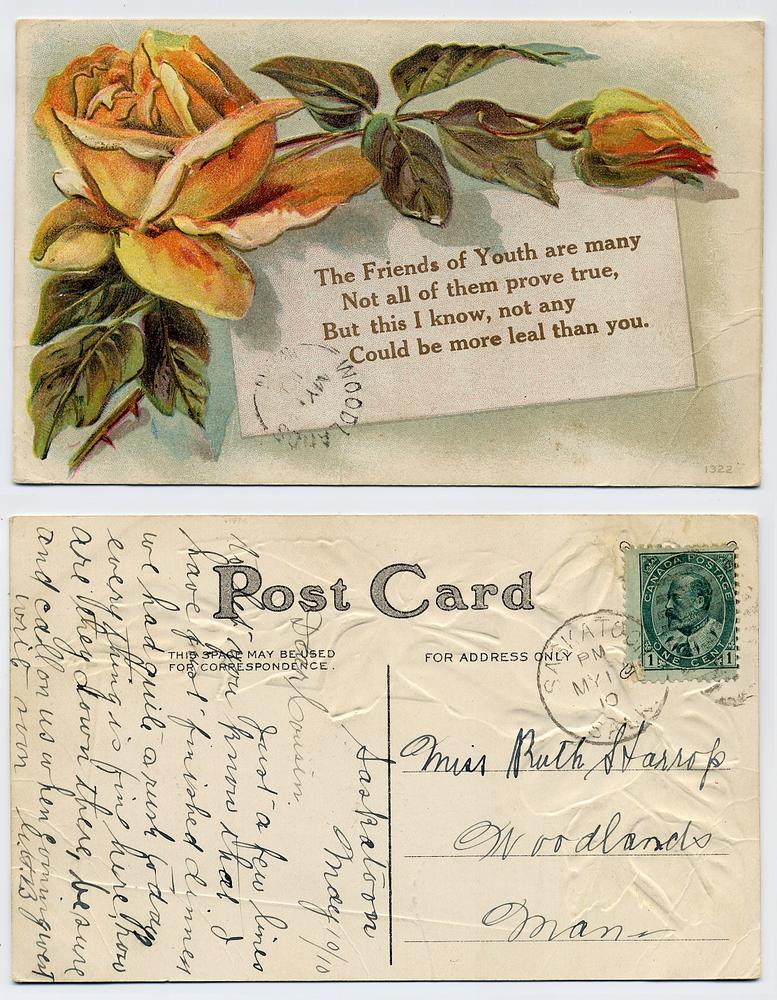 The Friends of Youth are many
Not all of them prove true,
But this I know, not any
Could be more leal than you.
WOODLANDS
1322
Post Card
THIS SPACE MAY BE USED
FOR CORRESPONDENCE.
FOR ADDRESS ONLY
CANADA POSTAGE
1 ONE CENT 1
SASKATOON
PM
MY 1
10
SASK
Miss Ruth Harrop
Woodlands
Man
Saskatoon
May 1/10
Dear Cousin.
Just a few lines
to let you know that I
have just finished dinner
we had quite a rush today
everything is fine here, how
are they down there, be sure
and call on us when coming west
write soon